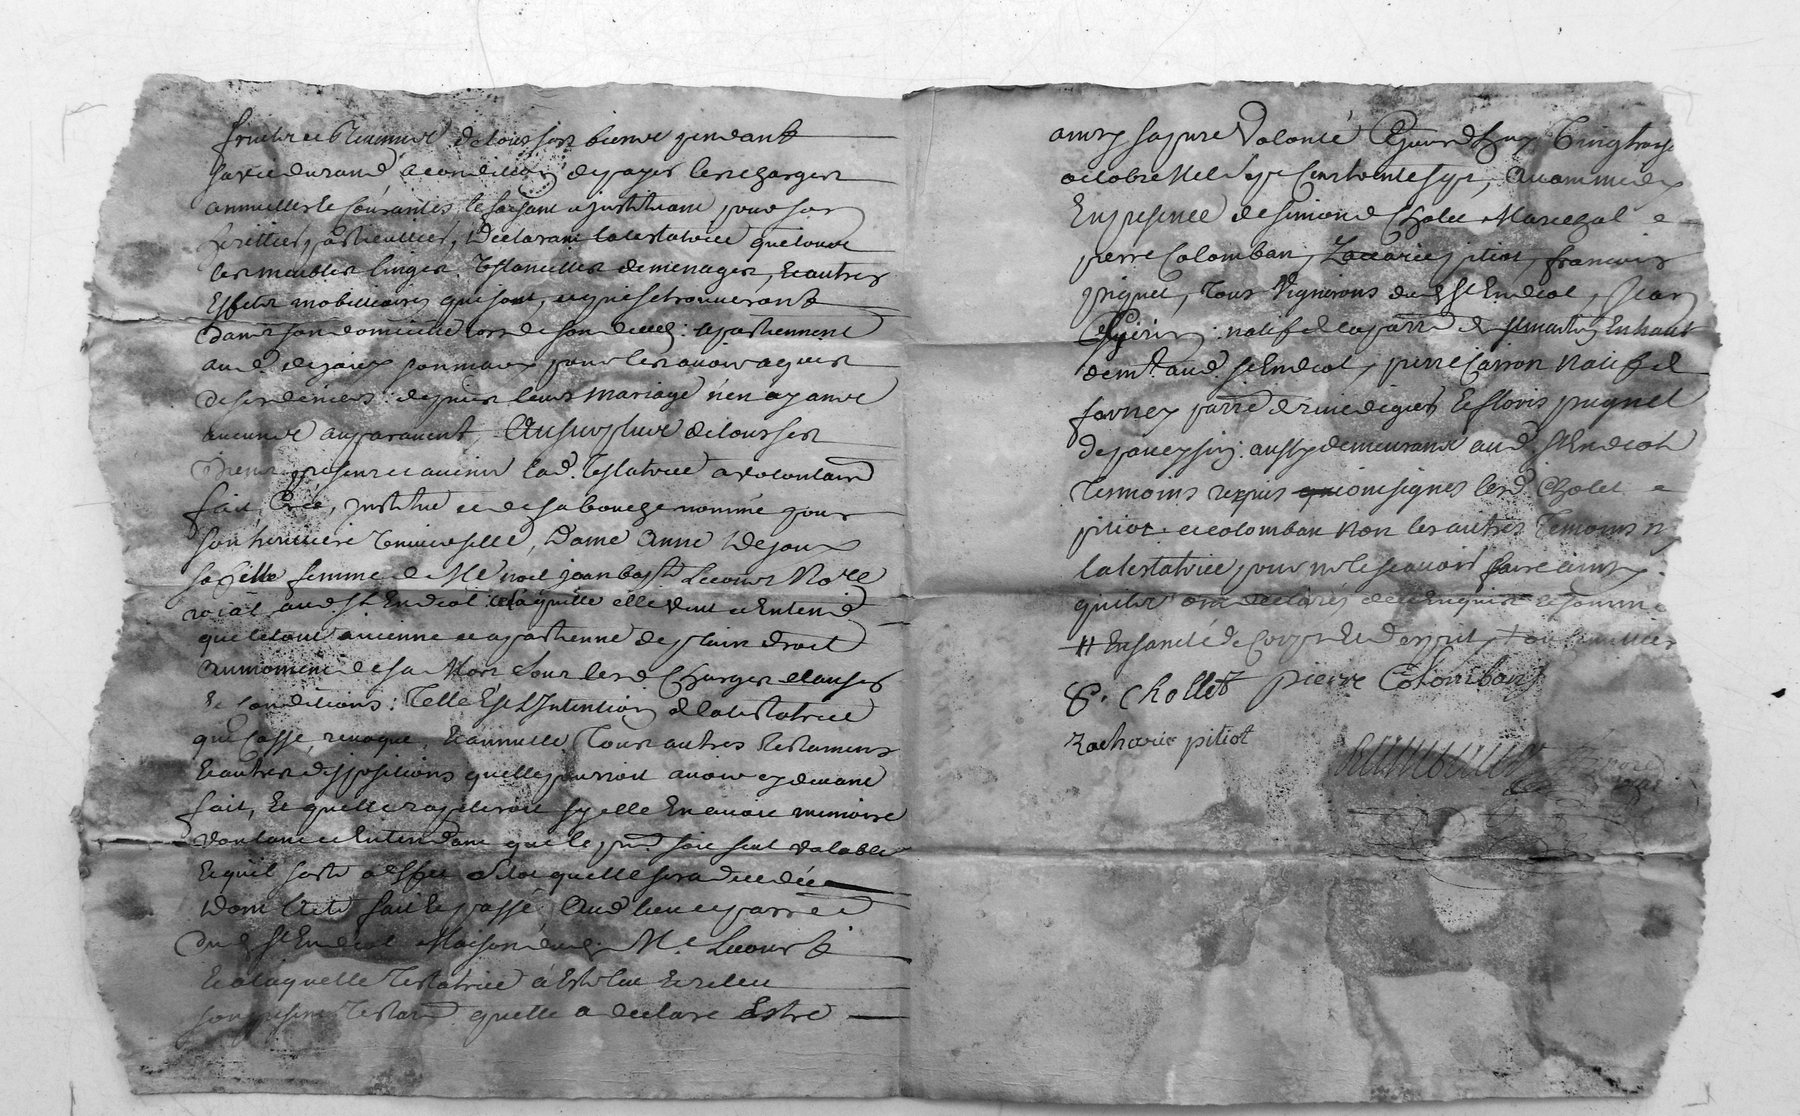 fruits et Revenus de tous ses biens pendant
sa vie durand, a condition de payer les charges
annuelles et courantes, le faisant a justitiant pour ses
heritiers particulliers, Declarant la testatrice que tous
les meubles linges, Ustancilles de menages, et autres
Effets mobilliaires qui sont, et qui se trouveront
dans son domicille lors de son deced: apartiennent
aud. dejoux son marÿ pour les avoir aquis
de ses deniers depuis leurs mariage n'en ayant
aucuns auparavent, Au surplus de tous ses
Biens presents et avenir lad. Testatrice a volontaird
fait, Créé, jnstitué et de sa bouche nommé pour
son heritiere Universelle, Dame Anne Dejoux
sa fille femme de Me noel jean bapt Lecourt No.re
roial aud. St. Endéol a laquelle elle veut et Entend
que le tout avienne et apartienne de plain droit
au moment de sa Mort sous lesd Charges clauses
Et Conditions, Telle Est L'Intention de la testatrice
qui Casse, revoque, Et annulle Tous autres testamens
Et autres dispositions quelle pourroit avoir cy devant
fait, Et quelle rapeleroit sy elle En avoit memoire
voulant et Entendant que le pnt soit seul valable
Et quil sorte a Effet sitot quelle sera decedée
Dont Acte fait Et passé Aud lieu et parre
dud St Endéol Maison dud. Me. Lecourt
Et a laquelle Testatrice á Esté lue Et relue
son present Testamt. quelle a declaré Estre
ainsy sa pure Volonté Cejourdhuy Vingt trois
octobre Mil Sept Cent trente sept, avant midy
En presence de simond Cholet Marechal et
pierre Colomban, Zacarie pitiot, francois
piguet, Tous Vignerons dud St Endéol, Jean
Guerin natif de la parre de St martin En haut
demt. aud. St Endéol, pierre Carron natif de
parre de rivedegiers Et floris piguet
de : aussy demeurans aud. St Endéol
Tesmoins requis ont signes lesd. Cholet et
pitiot et colomban Non les autres Temoins ny
la testatrice, pour ne le scavoir faire ainsy
quils ont declarés de ce Enquis et sommé
# En santé de Corps Et d'esprit,
S. Chollet pierre Colomban
Zacharie pitiot